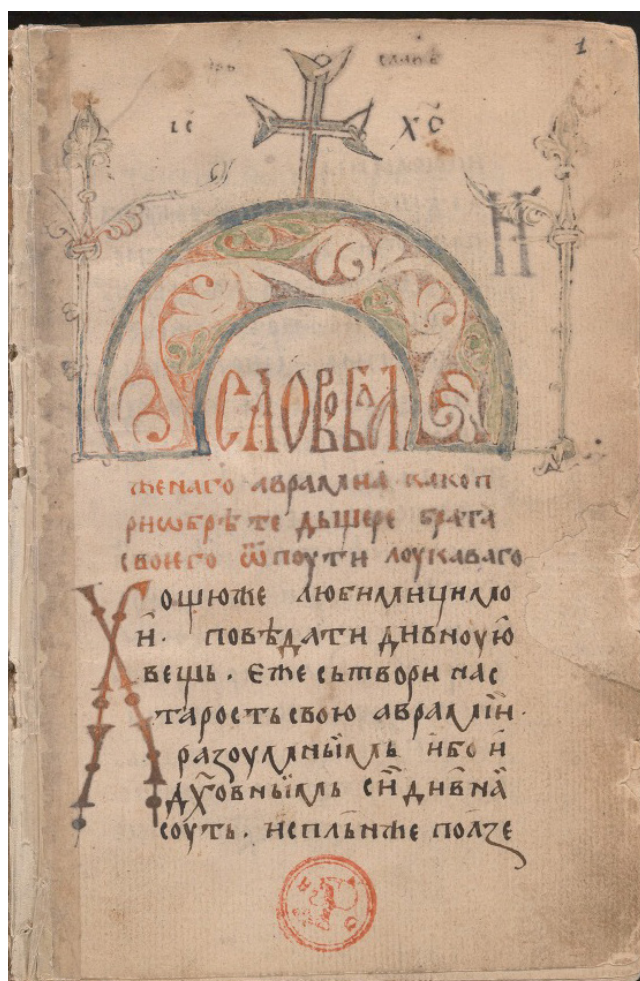 1
ІС ХС
И
СЛОВО БЛА
женаго авраамиа како п
риѡбрѣте дьщере брата
своего ѿ поути лоукаваго
Хощюже любимици мо
и. повѣдати дивноую
вещь. Еже сьтвори на с
тарость свою авраміи.
разоумныимь ибо и
дх҃овныимь си дивна
соуть. исплънже ползе